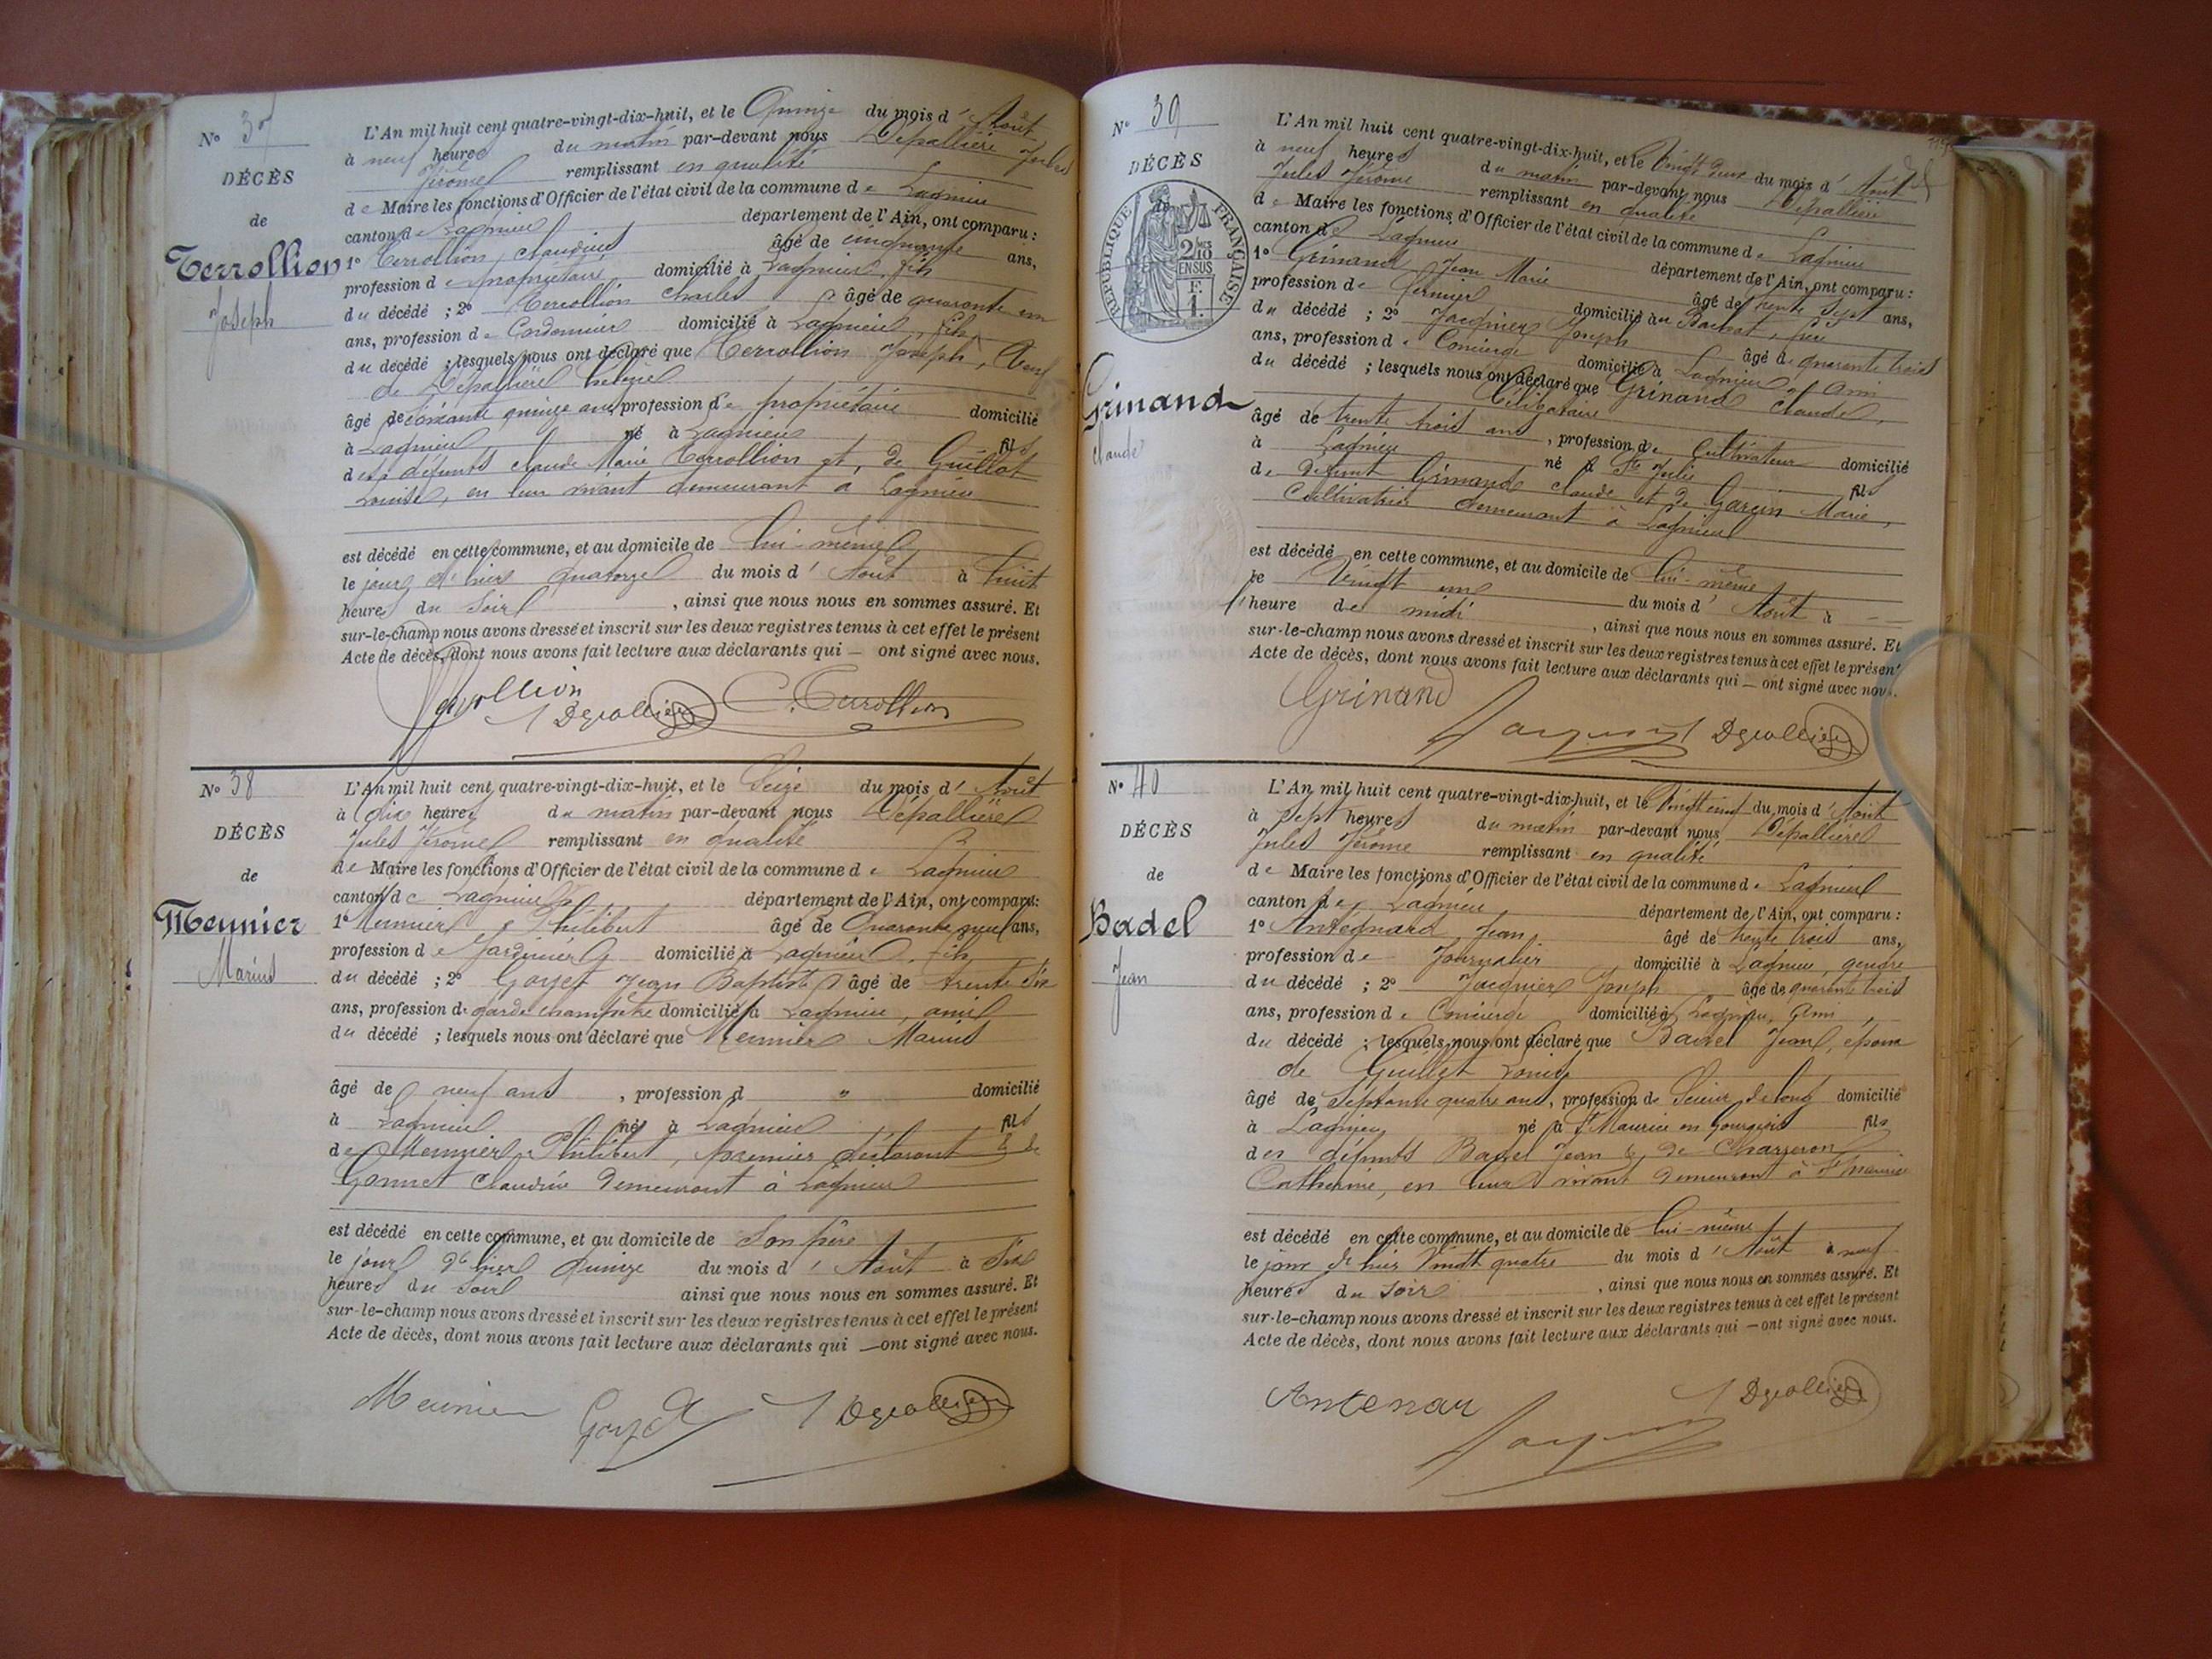 No 37
DÉCÈS
de
Terrollion
Joseph
L'An mil huit cent quatre-vingt-dix-huit, et le Quinze du mois d' Août
à neuf heures du matin par-devant nous Dépallière Jules
Jérôme remplissant en qualité
de Maire les fonctions d'Officier de l'état civil de la commune de Lagnieu
canton de Lagnieu département de l'Ain, ont comparu :
1o Terrollion Claudius âgé de cinquante ans,
profession de propriétaire, domicilié à Lagnieu, fils
du décédé ; 2o Terrollion Charles âgé de quarante un
ans, profession de Cordonnier domicilié à Lagnieu, fils
du décédé ; lesquels nous ont déclaré que Terrollion Joseph, Veuf
de Dépallière
âgé de soixante quinze ans, profession de propriétaire domicilié
à Lagnieu né à Lagnieu fils
des défunts Claude Marie Terrollion et, de Guillot
Louise, en leur vivant demeurant à Lagnieu
est décédé en cette commune, et au domicile de lui-même
le jour d'hier quatorze du mois d' Août à huit
heures du soir , ainsi que nous nous en sommes assuré. Et
sur-le-champ nous avons dressé et inscrit sur les deux registres tenus à cet effet le présent
Acte de décès, dont nous avons fait lecture aux déclarants qui — ont signé avec nous.
Terrollion
J Depallière C. Terrollion
No 38
DÉCÈS
de
Meunier
Marius
L'An mil huit cent quatre-vingt-dix-huit, et le Seize du mois d' Août
à dix heures du matin par-devant nous Dépallière
Jules Jérôme remplissant en qualité
de Maire les fonctions d'Officier de l'état civil de la commune de Lagnieu
canton de Lagnieu département de l'Ain, ont comparu:
1o Meunier Philibert âgé de Quarante neuf ans,
profession de Jardinier domicilié à Lagnieu
du décédé ; 2o Goyet Jean Baptiste âgé de trente six
ans, profession de garde champêtre domicilié à Lagnieu, ami
du décédé ; lesquels nous ont déclaré que Meunier Marius
âgé de neuf ans , profession d " domicilié
à Lagnieu né à Lagnieu fils
de Meunier Philibert, premier déclarant & de
Gonnet Claudine demeurant à Lagnieu
est décédé en cette commune, et au domicile de Son père
le jour d'hier Quinze du mois d' Août à Six
heures du soir ainsi que nous nous en sommes assuré. Et
sur-le-champ nous avons dressé et inscrit sur les deux registres tenus à cet effet le présent
Acte de décès, dont nous avons fait lecture aux déclarants qui — ont signé avec nous.
Meunier Goyet J Depallière
No 39
DÉCÈS
RÉPUBLIQUE FRANÇAISE
2/10 EN SUS
F. 1.
Grinand
Claude
L'An mil huit cent quatre-vingt-dix-huit, et le Vingt deux du mois d' Août
à neuf heures du matin par-devant nous Dépallière
Jules Jérôme remplissant en qualité
de Maire les fonctions d'Officier de l'état civil de la commune de Lagnieu
canton de Lagnieu département de l'Ain, ont comparu :
1o Grinand Jean Marie âgé de trente sept ans,
profession de Fermier domicilié au
du décédé ; 2o Jacquier Joseph âgé de quarante trois
ans, profession de Concierge domicilié à Lagnieu et ami
du décédé ; lesquels nous ont déclaré que Grinand Claude,
Célibataire
âgé de trente trois ans , profession de Cultivateur domicilié
à Lagnieu né à Ste Julie fils
de défunt Grinand Claude et de Garcin Marie,
Cultivatrice demeurant à Lagnieu
est décédé en cette commune, et au domicile de lui-même
le Vingt un du mois d' Août à —
heure de midi , ainsi que nous nous en sommes assuré. Et
sur-le-champ nous avons dressé et inscrit sur les deux registres tenus à cet effet le présent
Acte de décès, dont nous avons fait lecture aux déclarants qui — ont signé avec nous.
Grinand
Jacquier J Depallière
No 40
DÉCÈS
de
Badel
Jean
L'An mil huit cent quatre-vingt-dix-huit, et le Vingt cinq du mois d' Août
à sept heures du matin par-devant nous Dépallière
Jules Jérôme remplissant en qualité
de Maire les fonctions d'Officier de l'état civil de la commune de Lagnieu
canton de Lagnieu département de l'Ain, ont comparu :
1o Antégnard Jean, âgé de trente trois ans,
profession de Journalier domicilié à Lagnieu, gendre
du décédé ; 2o Jacquier Joseph âgé de quarante trois
ans, profession de Concierge domicilié à Lagnieu, ami,
du décédé ; lesquels nous ont déclaré que Badel Jean, époux
de Guillet Louise
âgé de Septante quatre ans, profession de Scieur de long domicilié
à Lagnieu né à St Maurice en Gourgois fils
des défunts Badel Jean & de Charreron
Catherine, en leur vivant demeurant à St Maurice
est décédé en cette commune, et au domicile de lui-même
le jour d'hier Vingt quatre du mois d' Août à neuf
heures du soir , ainsi que nous nous en sommes assuré. Et
sur-le-champ nous avons dressé et inscrit sur les deux registres tenus à cet effet le présent
Acte de décès, dont nous avons fait lecture aux déclarants qui — ont signé avec nous.
Antenar J Depallière
Jacquier